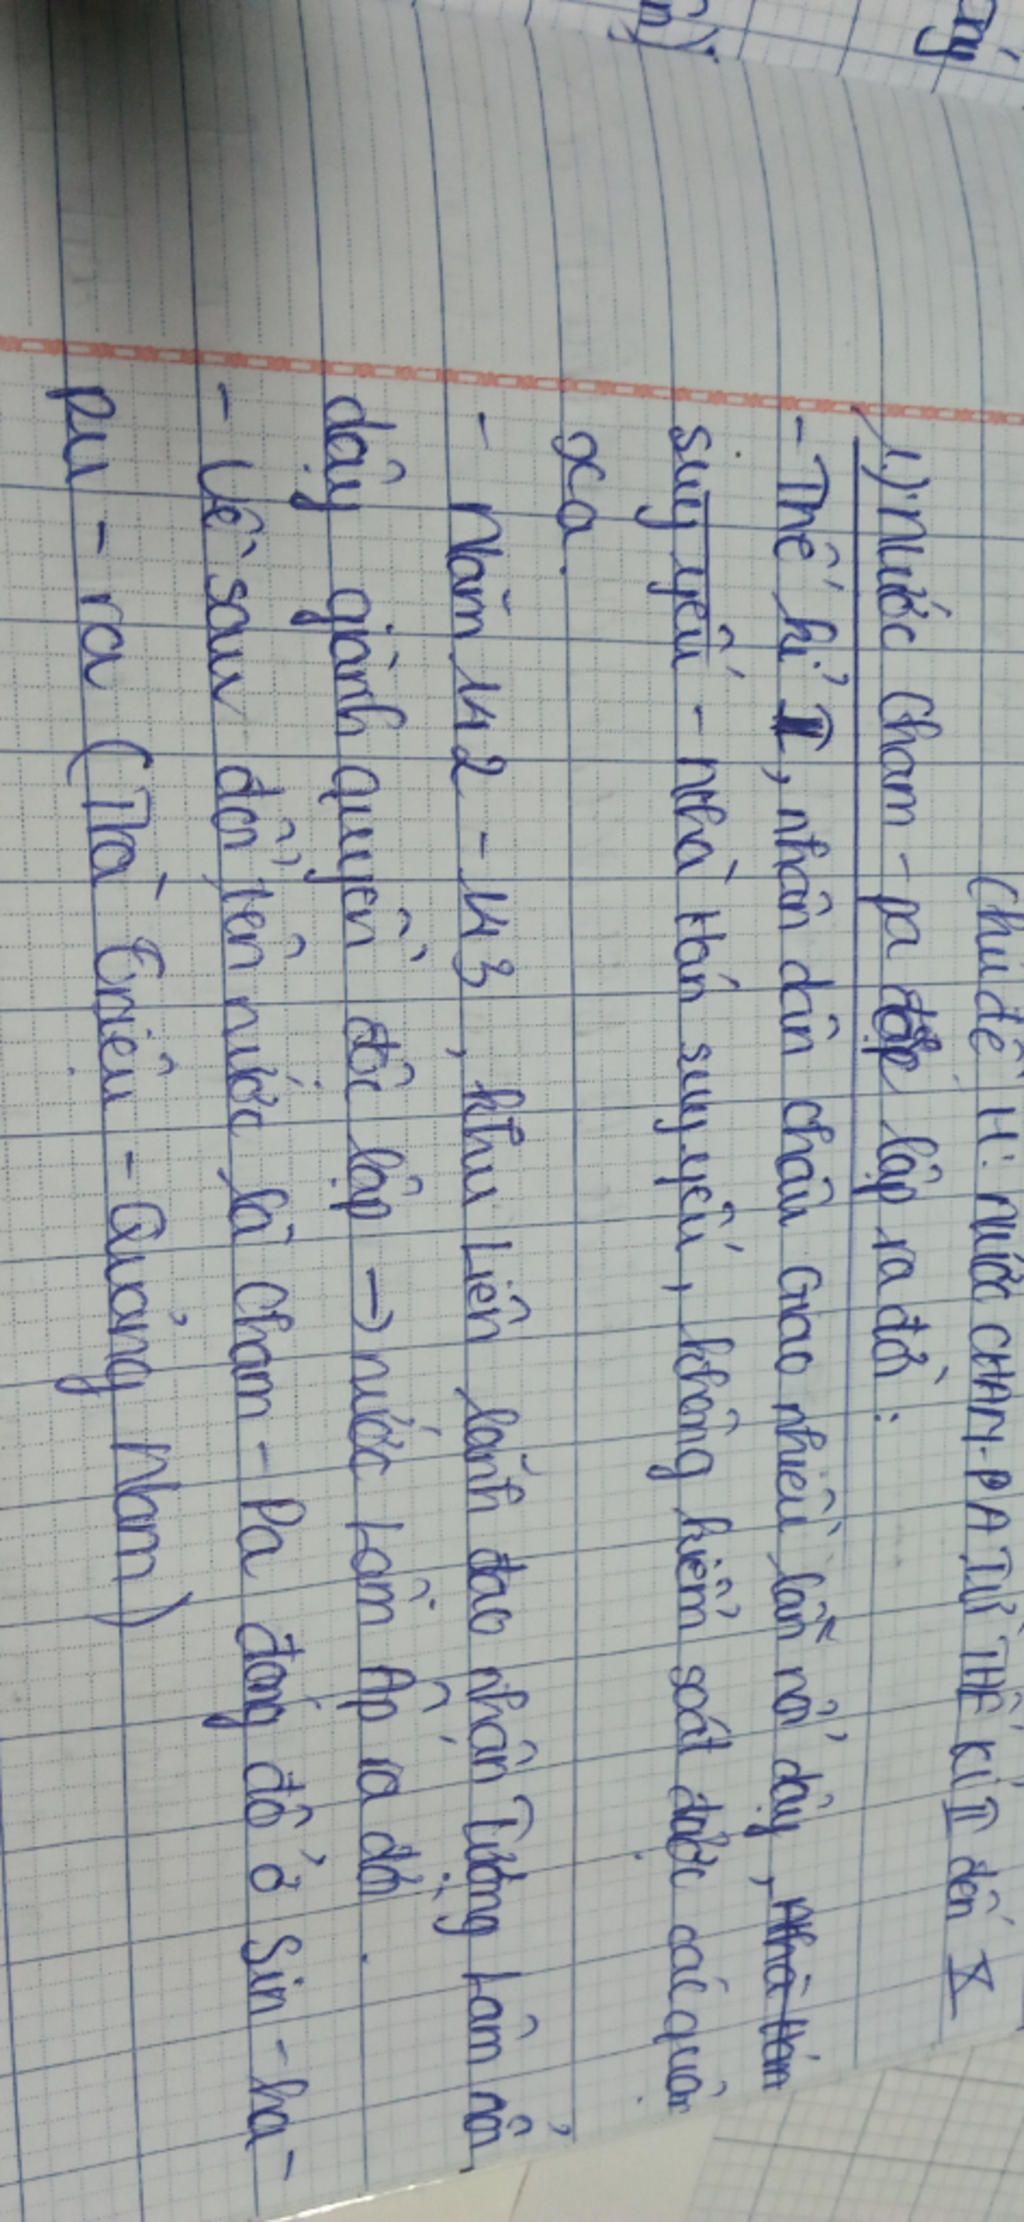 Chủ đề 4: NƯỚC CHAM-PA TỪ THẾ KỈ II đến X
1) Nước Cham - pa lập ra đời :
- Thế kỉ I, nhân dân châu Giao nhiều lần nổi dậy, nhà Hán
suy yếu - Nhà Hán suy yếu, không kiểm soát được các quận
xa.
- Năm 192 - 193, khu Liên lãnh đạo nhân Tượng Lâm nổi
dậy giành quyền độc lập → nước Lâm Ấp ra đời.
- Về sau đổi tên nước là Cham - Pa đóng đô ở Sin - ha -
pu - ra (Trà Triệu - Quảng Nam)